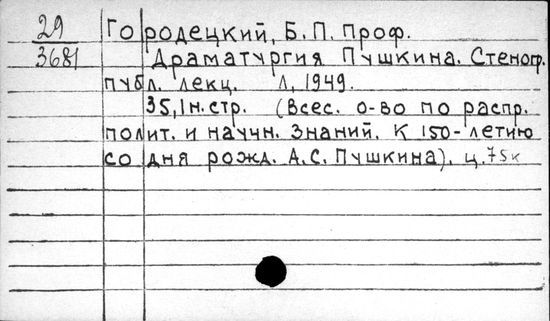 29 Городецкий, Б.П. Проф.
3681 Драматургия Пушкина. Стеногр.
публ. лекц. Л, 1949.
35, 1 н.стр. (Всес. о-во по распр.
полит. и научн. знаний. К 150-летию
со дня рожд. А.С. Пушкина). ц. 75к